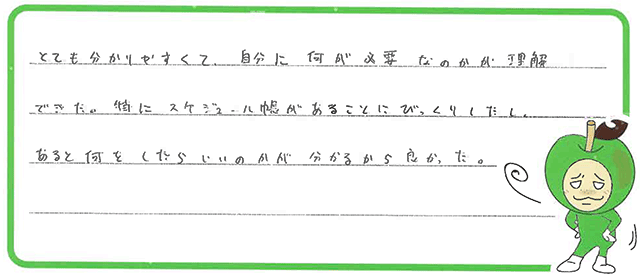 とても分かりやすくて、自分に何が必要なのかが理解
できた。特にスケジュール帳があることにびっくりしたし、
あると何をしたらいいのかが分かるから良かった。